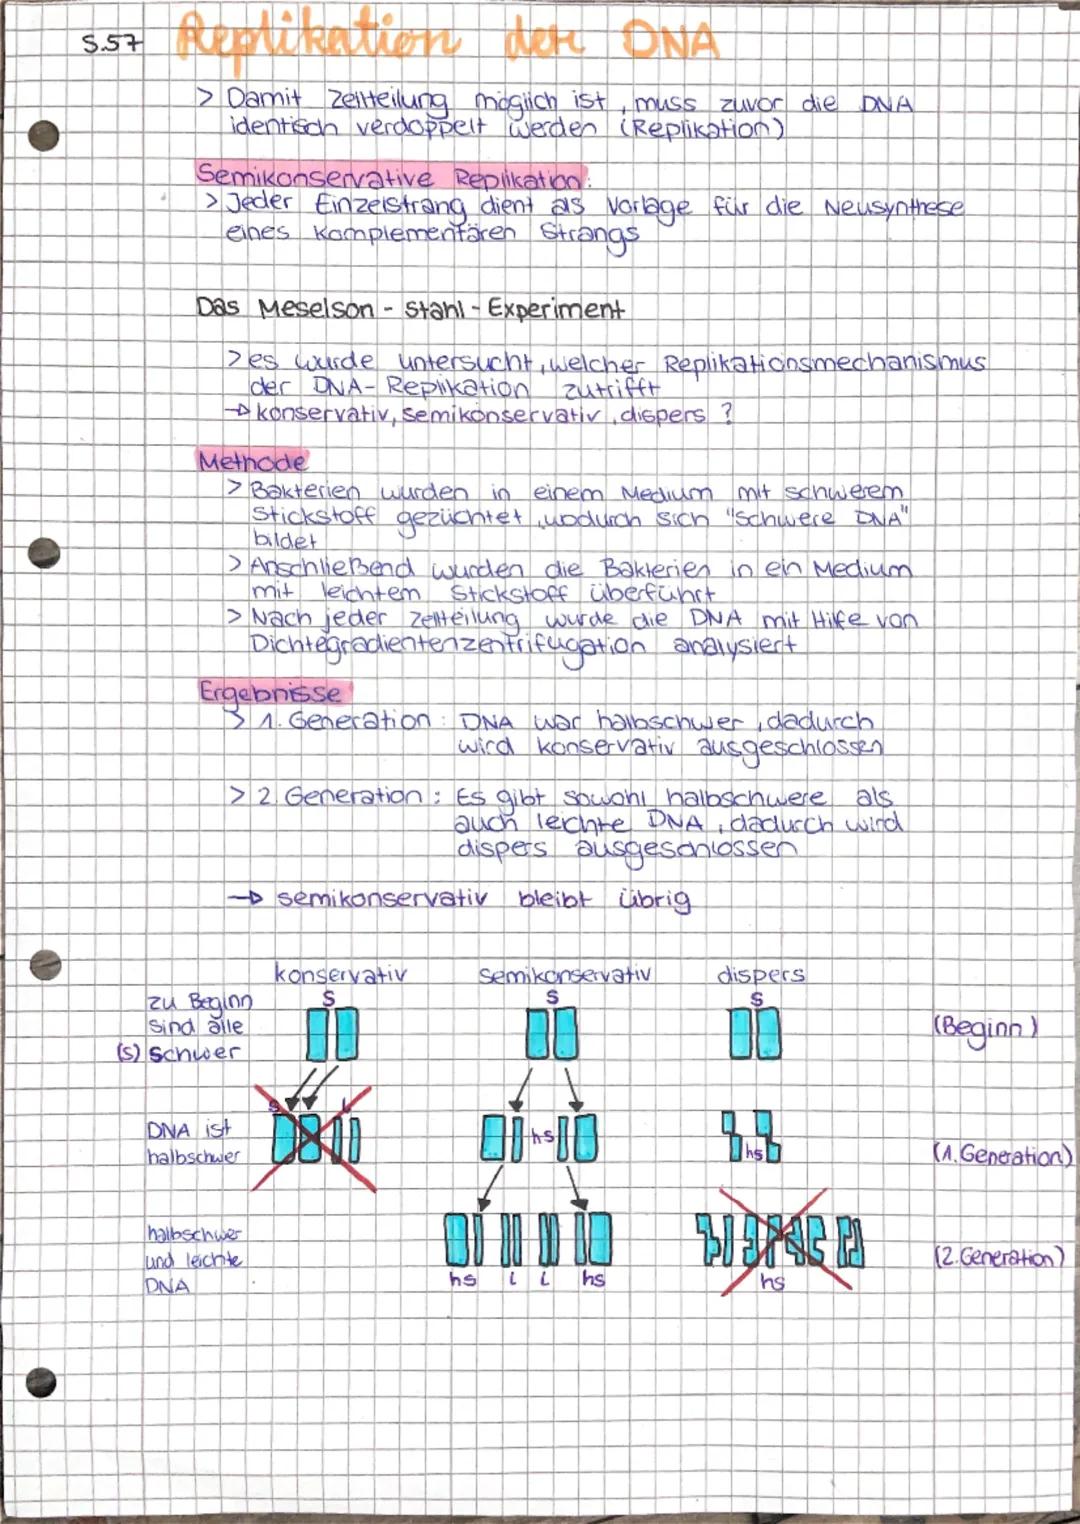 S.57 Replikation der DNA
> Damit Zellteilung möglich ist, muss zuvor die DNA
identisch verdoppelt werden (Replikation)
Semikonservative Replikation:
> Jeder Einzelstrang dient als Vorlage für die Neusynthese
eines komplementären Strangs
Das Meselson - Stahl - Experiment
> es wurde untersucht, welcher Replikationsmechanismus
der DNA-Replikation zutrifft
→ konservativ, semikonservativ, dispers?
Methode
> Bakterien wurden in einem Medium mit schwerem
Stickstoff gezüchtet, wodurch sich "Schwere DNA"
bildet
> Anschließend wurden die Bakterien in ein Medium
mit leichtem Stickstoff überführt
> Nach jeder Zellteilung wurde die DNA mit Hilfe von
Dichtegradientenzentrifugation analysiert
Ergebnisse
> 1. Generation: DNA war halbschwer, dadurch
wird konservativ ausgeschlossen
> 2. Generation: Es gibt sowohl halbschwere als
auch leichte DNA, dadurch wird
dispers ausgeschlossen
→ semikonservativ bleibt übrig
konservativ semikonservativ dispers
S S S
zu Beginn
sind alle
(s) schwer
(Beginn)
S L
DNA ist
halbschwer
hs hs
(1. Generation)
halbschwer
und leichte
DNA
(2. Generation)
hs L L hs hs